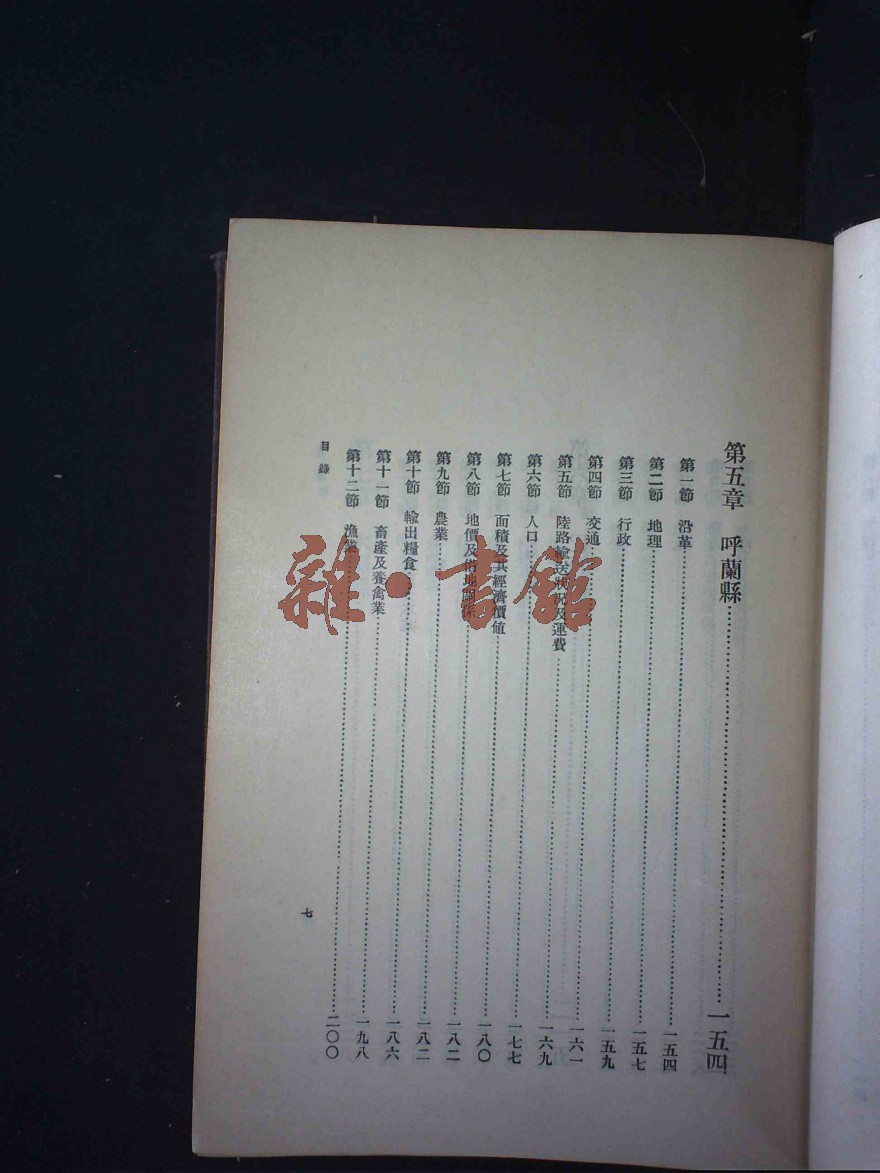 第五章 呼蘭縣……一五四
第一節 沿革……一五四
第二節 地理……一五七
第三節 行政……一五九
第四節 交通……一六一
第五節 陸路輸送狀況及運費……一六九
第六節 人口……一七七
第七節 面積及其經濟價値……一八〇
第八節 地價及借地關係……一八二
第九節 農業……一八二
第十節 輸出糧食……一八六
第十一節 畜產及養禽業……一九八
第十二節 漁業……二〇〇
目錄
七
雜·書館